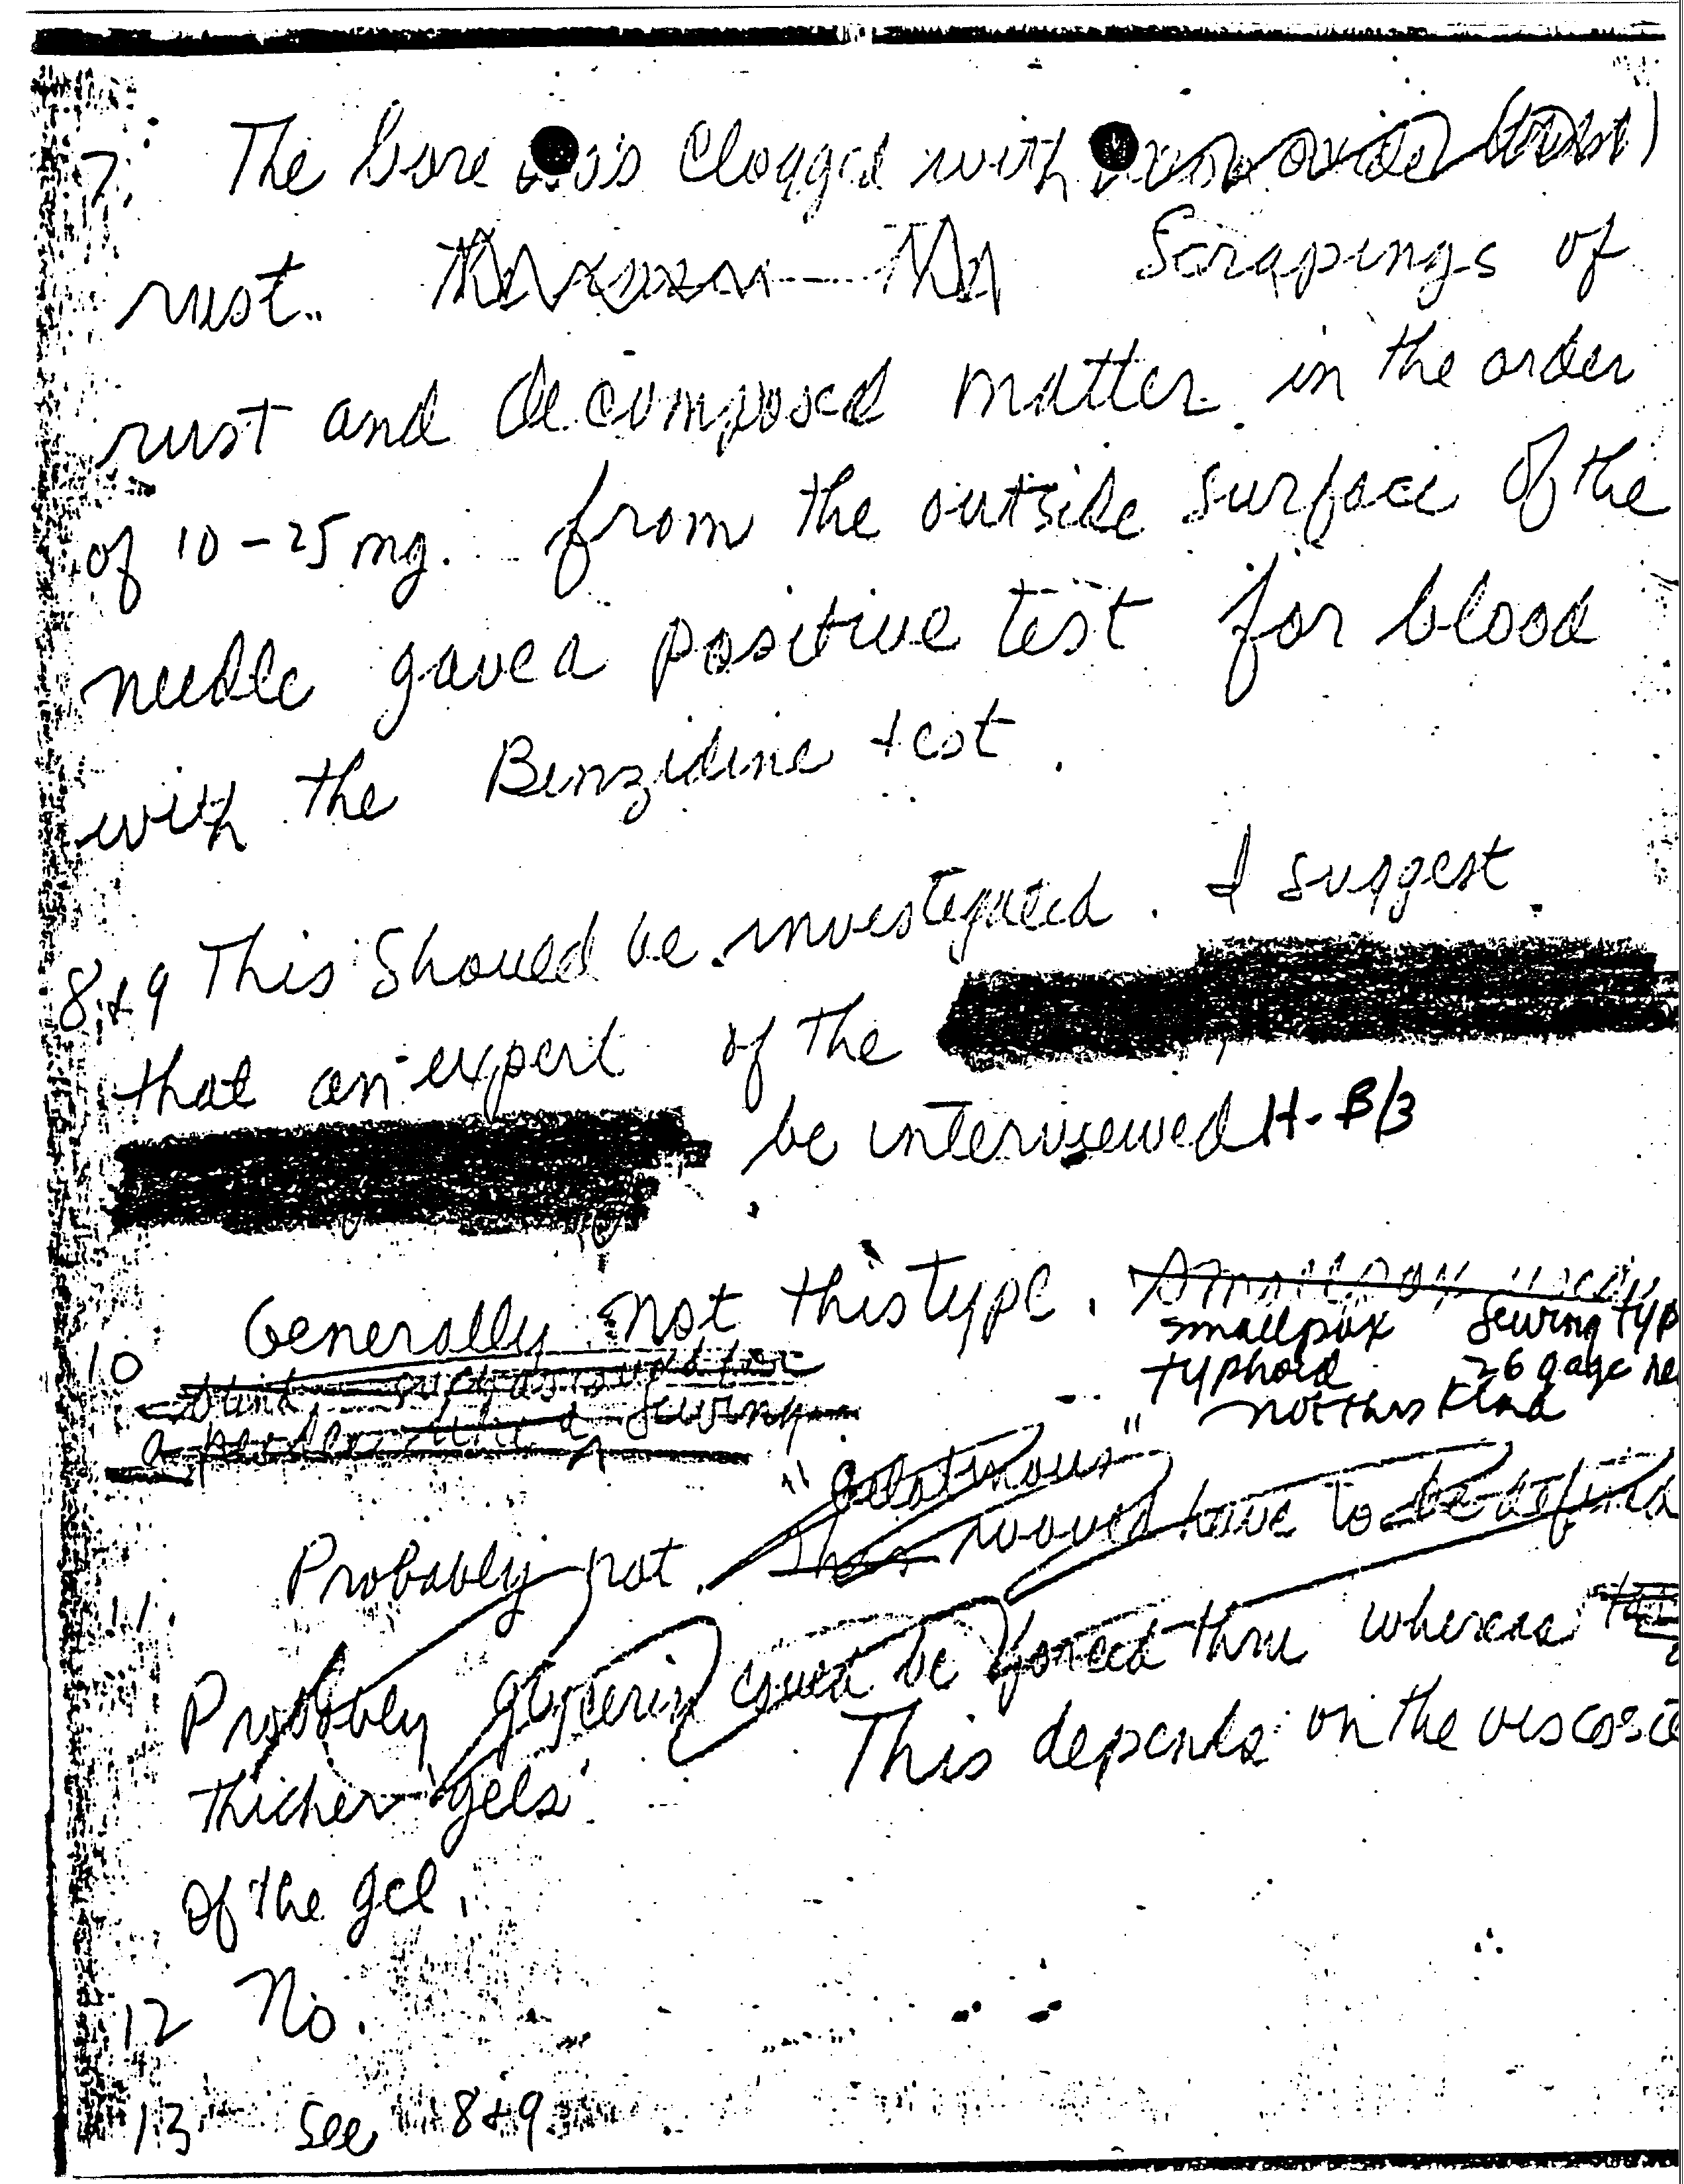 7. The bore was clogged with iron oxide (rust)
rust. Scrapings of
rust and decomposed matter in the order
of 10-25 mg. from the outside surface of the
needle gave a positive test for blood
with the Benzidine test.
8&9 This should be investigated. I suggest
that an expert of the
be interviewed H-B/3
10 Generally not this type. smallpox
smallpox sewing typ
typhoid 26 gage ne
not this kind
blunt such as used for
a sewing
"Gelatinous"
11. Probably not. This would have to be defined
Probably glycerin could be forced thru whereas
thicker gels. This depends on the viscosi
of the gel.
12 No.
13 See 8&9